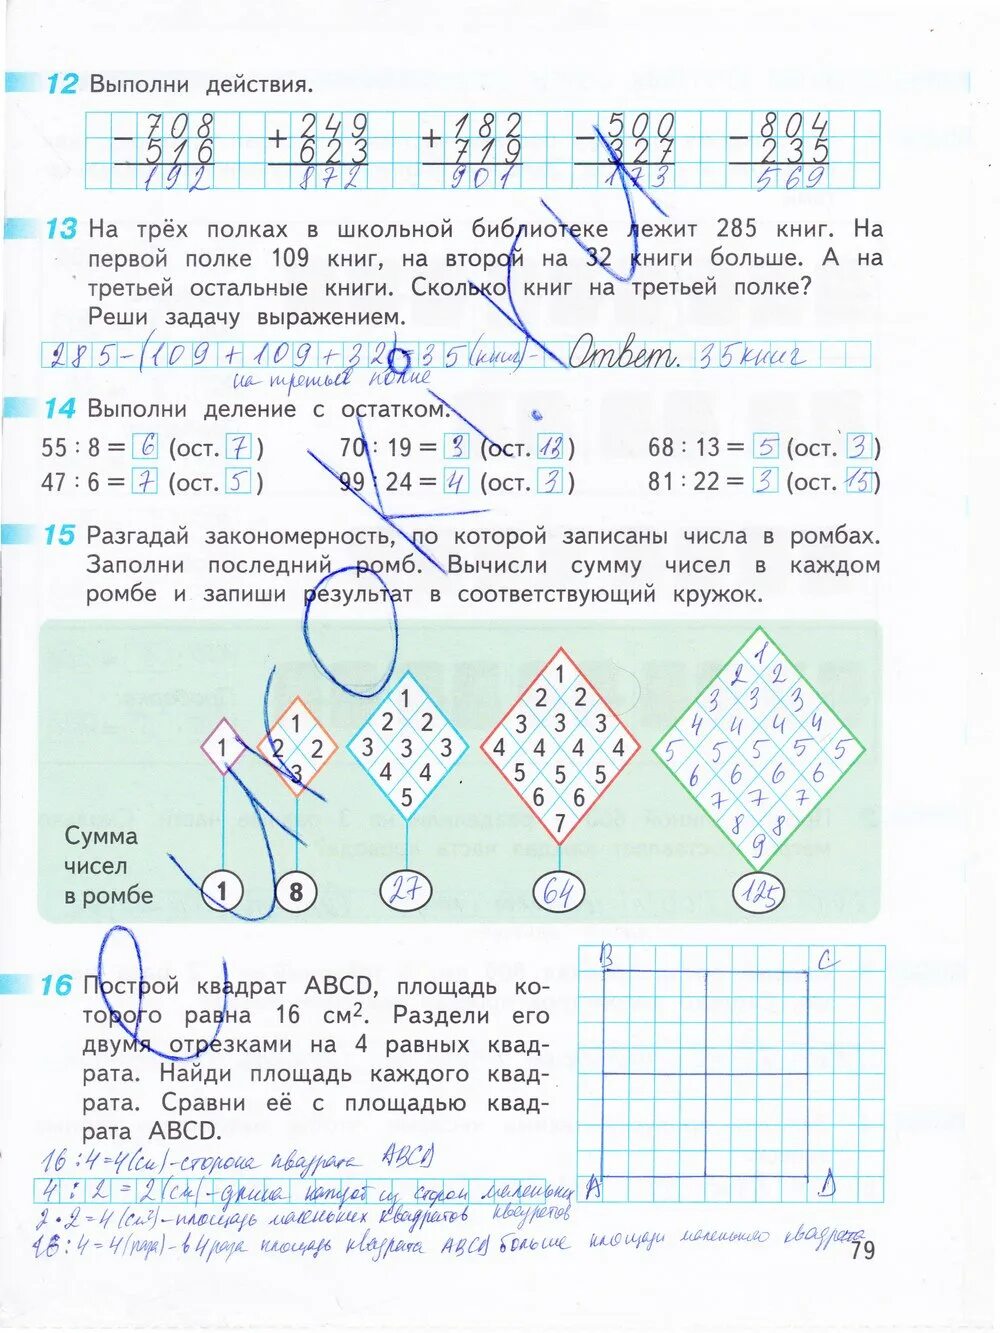 12 Выполни действия.
− 708 + 249 + 182 − 500 − 804
516 623 719 327 235
192 872 901 173 569
13 На трёх полках в школьной библиотеке лежит 285 книг. На
первой полке 109 книг, на второй на 32 книги больше. А на
третьей остальные книги. Сколько книг на третьей полке?
Реши задачу выражением.
285-(109+109+32)=35(книг)- Ответ. 35 книг
на третьей полке
14 Выполни деление с остатком.
55 : 8 = 6 (ост. 7) 70 : 19 = 3 (ост. 13) 68 : 13 = 5 (ост. 3)
47 : 6 = 7 (ост. 5) 99 : 24 = 4 (ост. 3) 81 : 22 = 3 (ост. 15)
15 Разгадай закономерность, по которой записаны числа в ромбах.
Заполни последний ромб. Вычисли сумму чисел в каждом
ромбе и запиши результат в соответствующий кружок.
1
1
2 2
3
1
2 2
3 3 3
4 4
5
1
2 2
3 3 3
4 4 4 4
5 5 5
6 6
7
1
2 2
3 3 3
4 4 4 4
5 5 5 5 5
6 6 6 6
7 7 7
8 8
9
Сумма
чисел
в ромбе
1 8 27 64 125
16 Построй квадрат ABCD, площадь ко-
торого равна 16 см². Раздели его
двумя отрезками на 4 равных квад-
рата. Найди площадь каждого квад-
рата. Сравни её с площадью квад-
рата ABCD.
B C
A D
16:4=4(см)-сторона квадрата ABCD
4:2=2(см)-длина каждой из сторон маленьких
квадратов
2·2=4(см²)-площадь маленьких квадратов
16:4=4(раза)-в 4 раза площадь квадрата ABCD больше площади маленького квадрата
79
e-uroki.ru